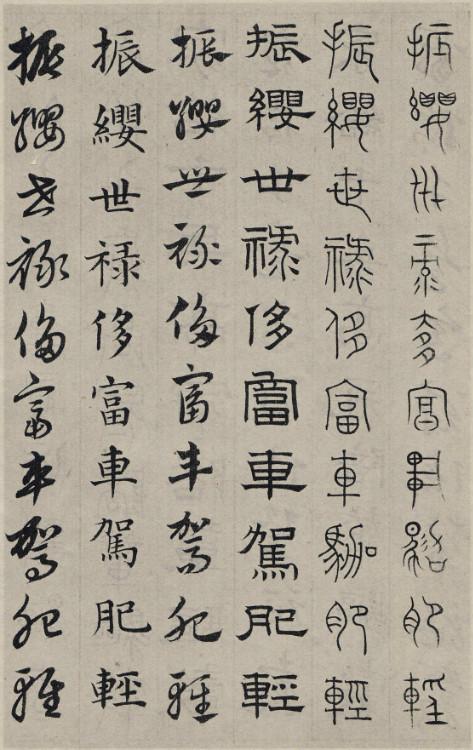 振纓世祿侈富車駕肥輕
振纓世祿侈富車駕肥輕
振纓世祿侈富車駕肥輕
振纓世祿侈富車駕肥輕
振纓世禄侈富車駕肥輕
振纓世祿侈富車駕肥輕